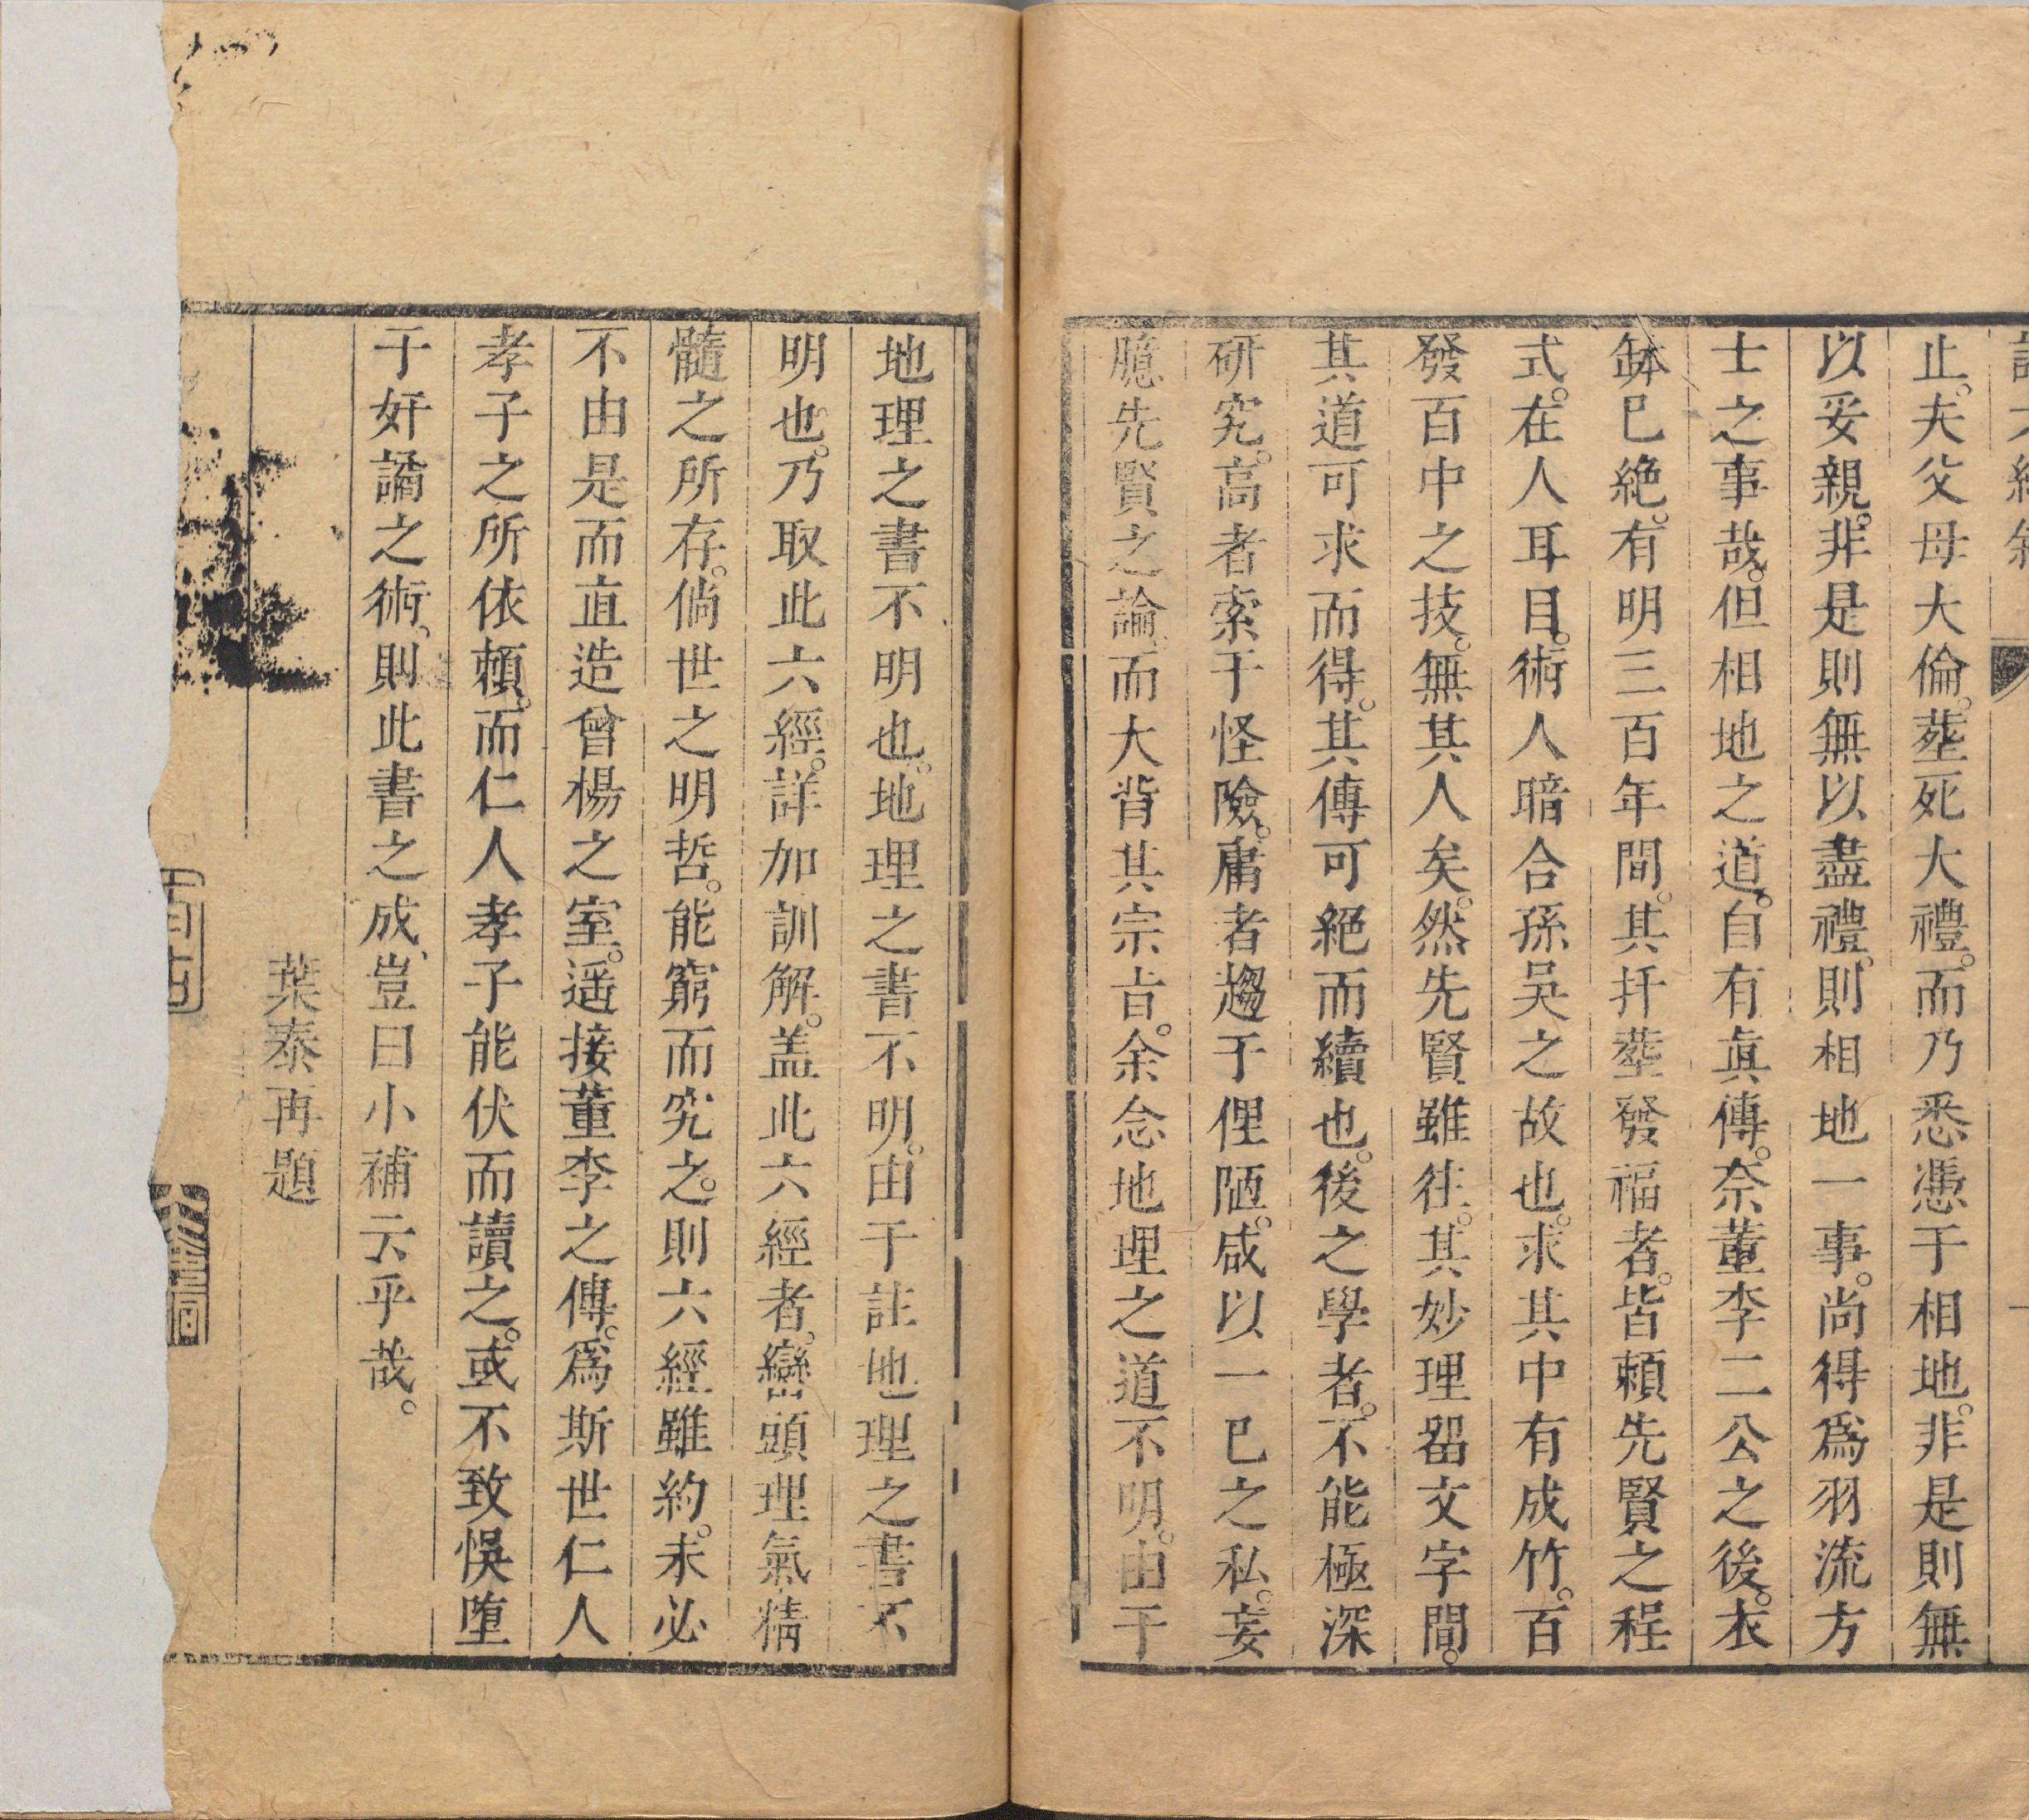 止。夫父母大倫。葬死大禮。而乃悉憑于相地。非是則無
以妥親。非是則無以盡禮。則相地一事。尚得爲羽流方
士之事哉。但相地之道。自有眞傳。奈董李二公之後。衣
鉢已絶。有明三百年間。其扦葬發福者。皆賴先賢之程
式。在人耳目。術人暗合孫吴之故也。求其中有成竹。百
發百中之技。無其人矣。然先賢雖往。其妙理畱文字間。
其道可求而得。其傳可絕而續也。後之學者。不能極深
研究。高者索于怪險。庸者趨于俚陋。咸以一已之私。妄
臆先賢之論、而大背其宗旨。余念地理之道不明。由于
地理之書不明也。地理之書不明。由于註地理之書不
明也。乃取此六經。詳加訓解。盖此六經者。巒頭理氣精
髓之所存。倘世之明哲。能窮而究之。則六經雖約。未必
不由是而直造曾楊之室。遥接董李之傳。爲斯世仁人
孝子之所依賴。而仁人孝子能伏而讀之。或不致悞墮
于奸譎之術、則此書之成、豈曰小補云乎哉。
葉泰再題